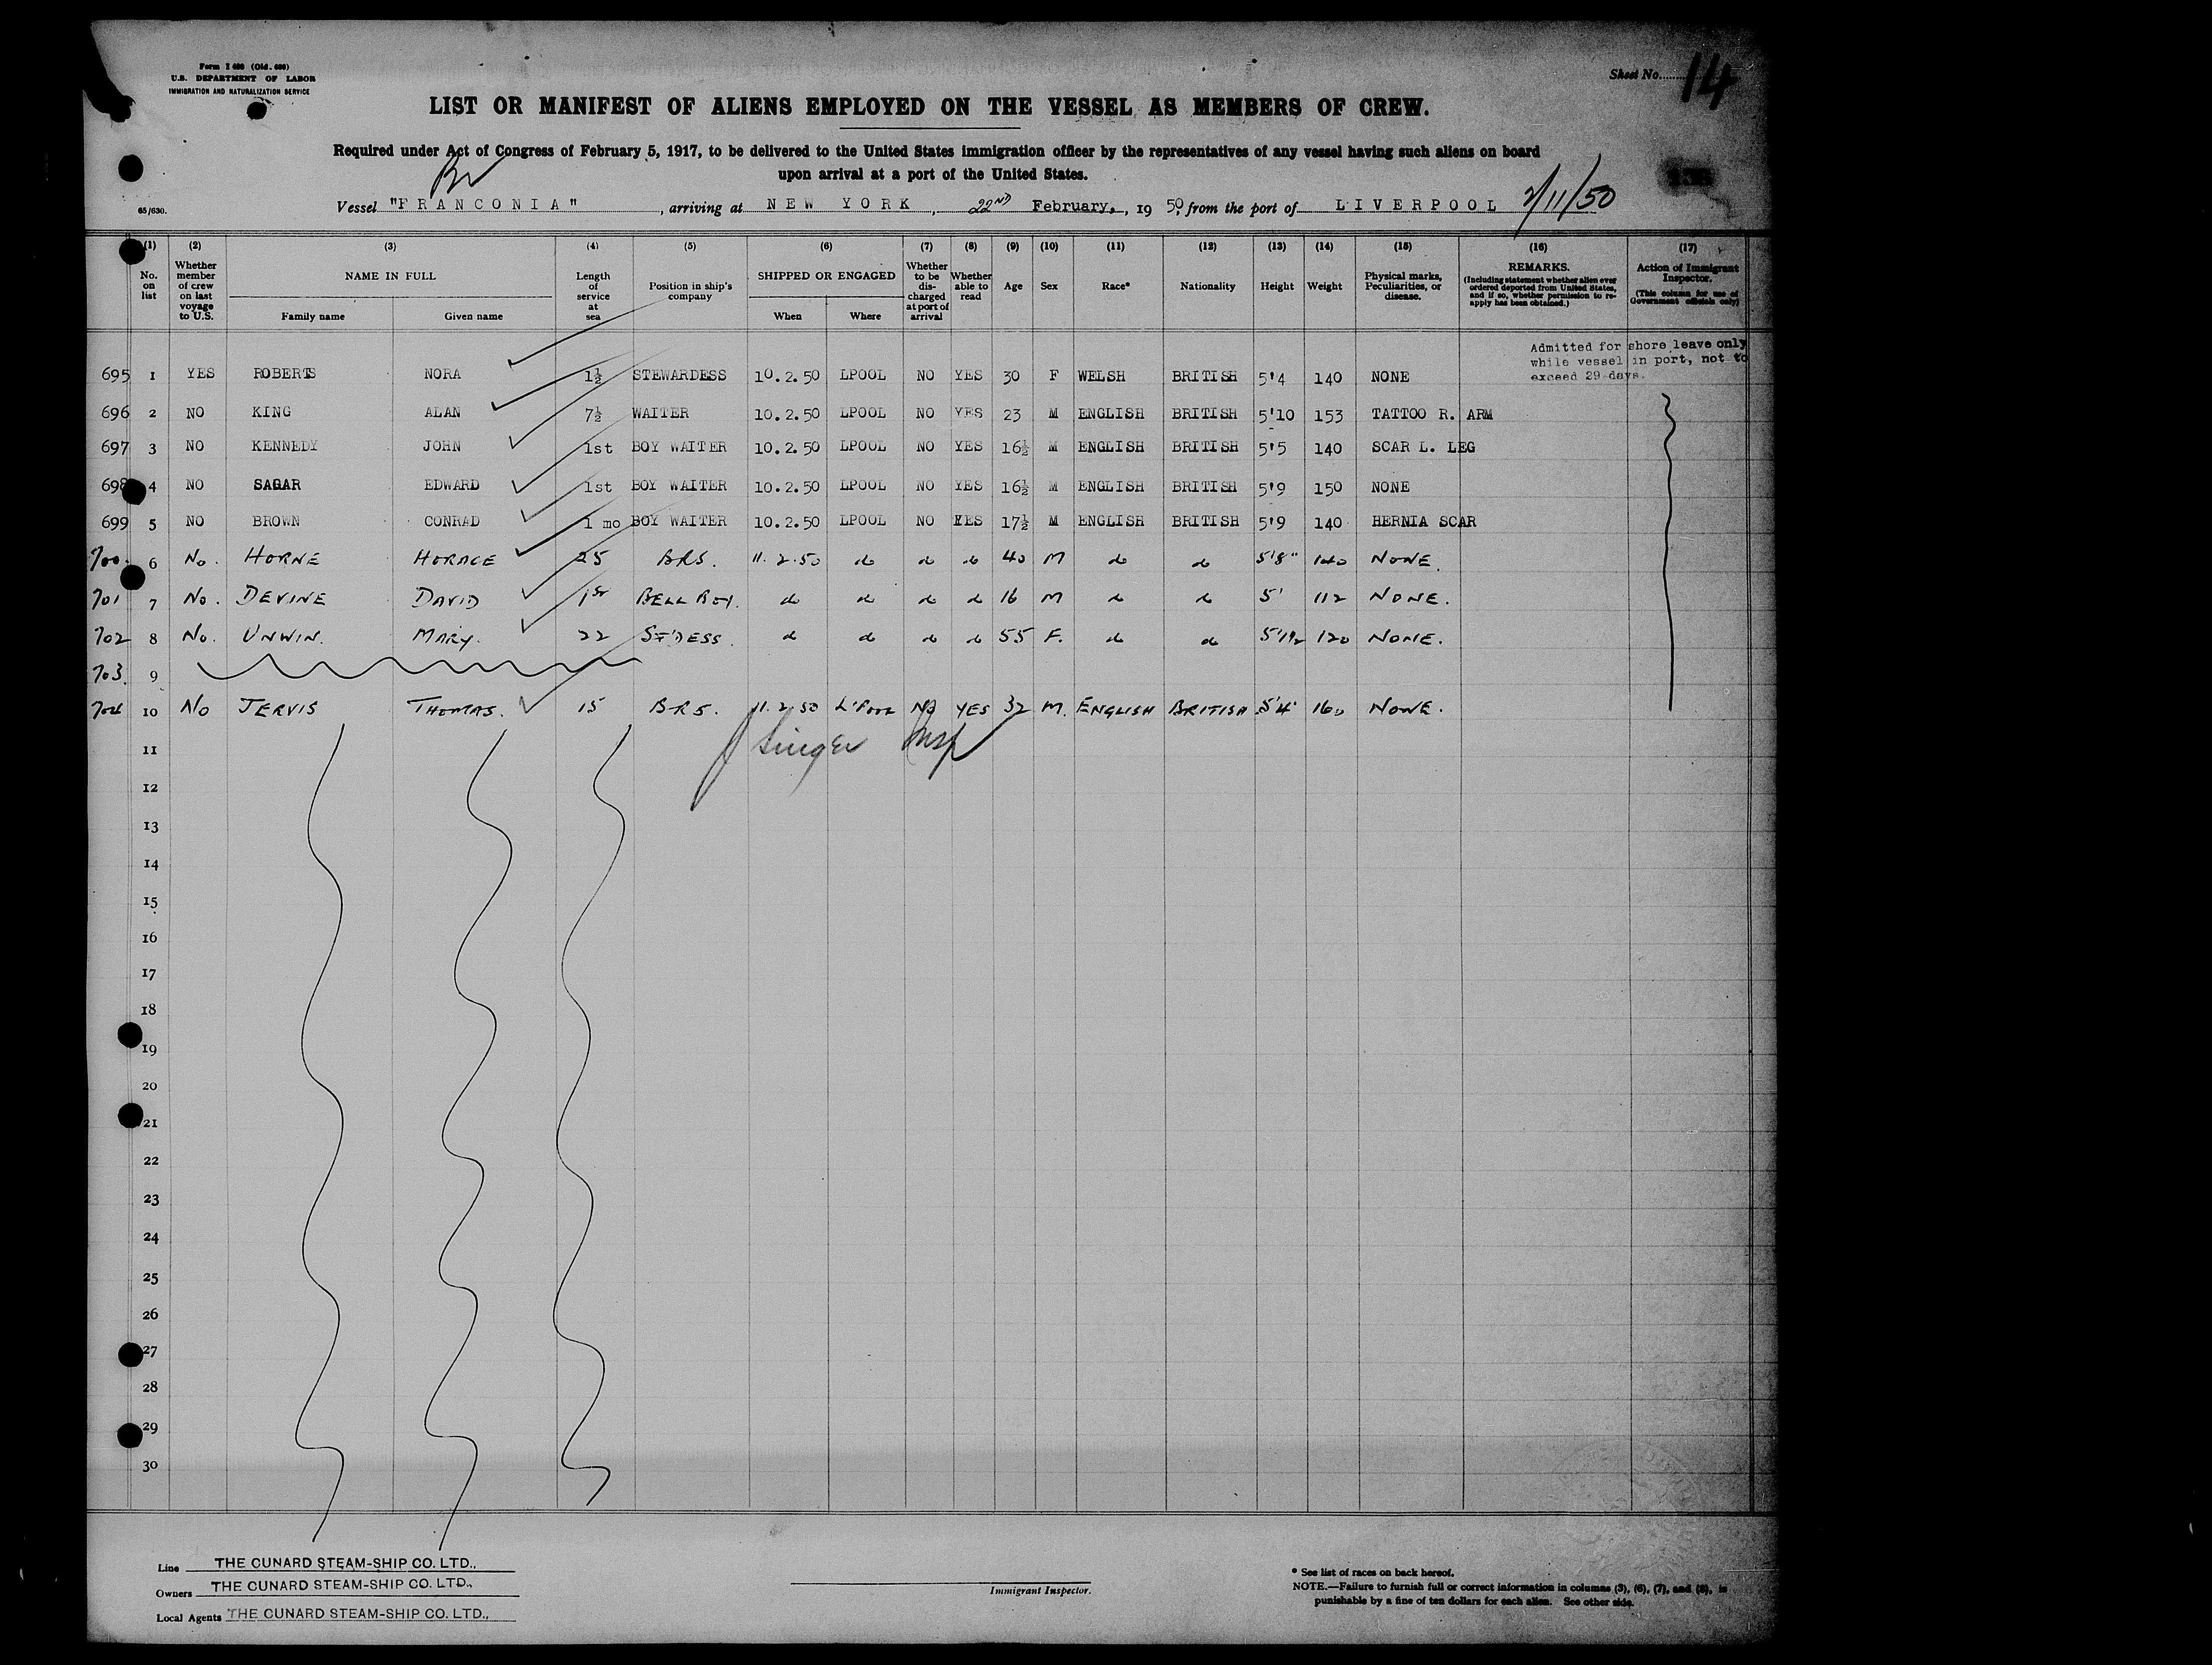 Form I 480 (Old. 689)
U.S. DEPARTMENT OF LABOR
IMMIGRATION AND NATURALIZATION SERVICE
Sheet No. 14
LIST OR MANIFEST OF ALIENS EMPLOYED ON THE VESSEL AS MEMBERS OF CREW.
Required under Act of Congress of February 5, 1917, to be delivered to the United States immigration officer by the representatives of any vessel having such aliens on board
upon arrival at a port of the United States.
65/630.
Vessel "FRANCONIA", arriving at NEW YORK, 22ND February, 1950, from the port of LIVERPOOL 2/11/50
(1) (2) (3) (4) (5) (6) (7) (8) (9) (10) (11) (12) (13) (14) (15) (16) (17)
No. on list
Whether member of crew on last voyage to U.S.
NAME IN FULL
Family name Given name
Length of service at sea
Position in ship's company
SHIPPED OR ENGAGED
When Where
Whether to be discharged at port of arrival
Whether able to read
Age
Sex
Race*
Nationality
Height
Weight
Physical marks, Peculiarities, or disease.
REMARKS.
(Including statement whether alien ever ordered deported from United States, and if so, whether permission to re-apply has been obtained.)
Action of Immigrant Inspector.
(This column for use of Government officials only)
Admitted for shore leave only
while vessel in port, not to
exceed 29 days.
695 1 YES ROBERTS NORA 1½ STEWARDESS 10.2.50 LPOOL NO YES 30 F WELSH BRITISH 5'4 140 NONE
696 2 NO KING ALAN 7½ WAITER 10.2.50 LPOOL NO YES 23 M ENGLISH BRITISH 5'10 153 TATTOO R. ARM
697 3 NO KENNEDY JOHN 1st BOY WAITER 10.2.50 LPOOL NO YES 16½ M ENGLISH BRITISH 5'5 140 SCAR L. LEG
698 4 NO SAGAR EDWARD 1st BOY WAITER 10.2.50 LPOOL NO YES 16½ M ENGLISH BRITISH 5'9 150 NONE
699 5 NO BROWN CONRAD 1 mo BOY WAITER 10.2.50 LPOOL NO YES 17½ M ENGLISH BRITISH 5'9 140 HERNIA SCAR
700 6 No. HORNE HORACE 25 BRS. 11.2.50 do do do 40 M do do 5'8" 140 NONE.
701 7 No. DEVINE DAVID 1st BELL BOY. do do do do 16 M do do 5' 112 NONE.
702 8 No. UNWIN. MARY. 22 ST'DESS. do do do do 55 F. do do 5'1½ 120 NONE.
703. 9
704 10 No JERVIS THOMAS. 15 BRS. 11.2.50 L'POOL NO YES 32 M. ENGLISH BRITISH 5'4" 160 NONE.
11 Singer Insp
12
13
14
15
16
17
18
19
20
21
22
23
24
25
26
27
28
29
30
Line THE CUNARD STEAM-SHIP CO. LTD.,
Owners THE CUNARD STEAM-SHIP CO. LTD.,
Local Agents THE CUNARD STEAM-SHIP CO. LTD.,
Immigrant Inspector.
* See list of races on back hereof.
NOTE.—Failure to furnish full or correct information in columns (3), (6), (7), and (8), is
punishable by a fine of ten dollars for each alien. See other side.